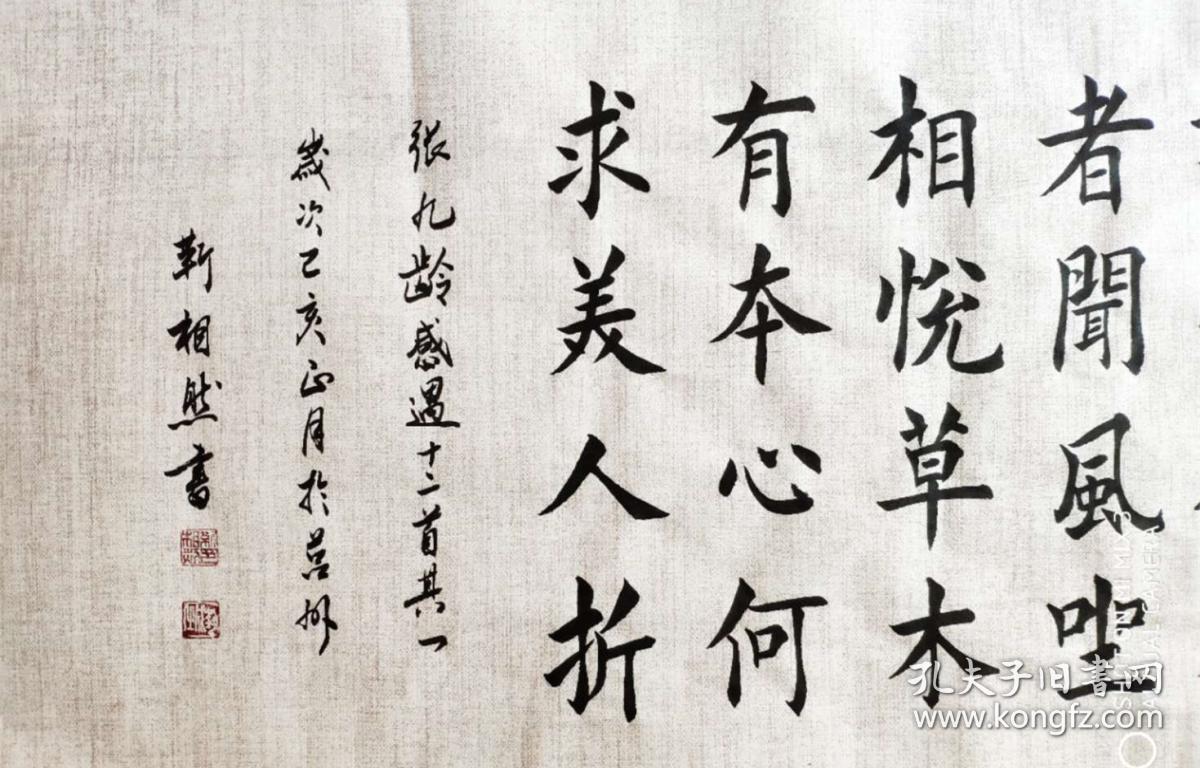 者聞風坐
相悅草木
有本心何
求美人折
張九齡感遇十二首其一
歲次己亥正月於莒州
靳相然書
孔夫子旧書网
www.kongfz.com